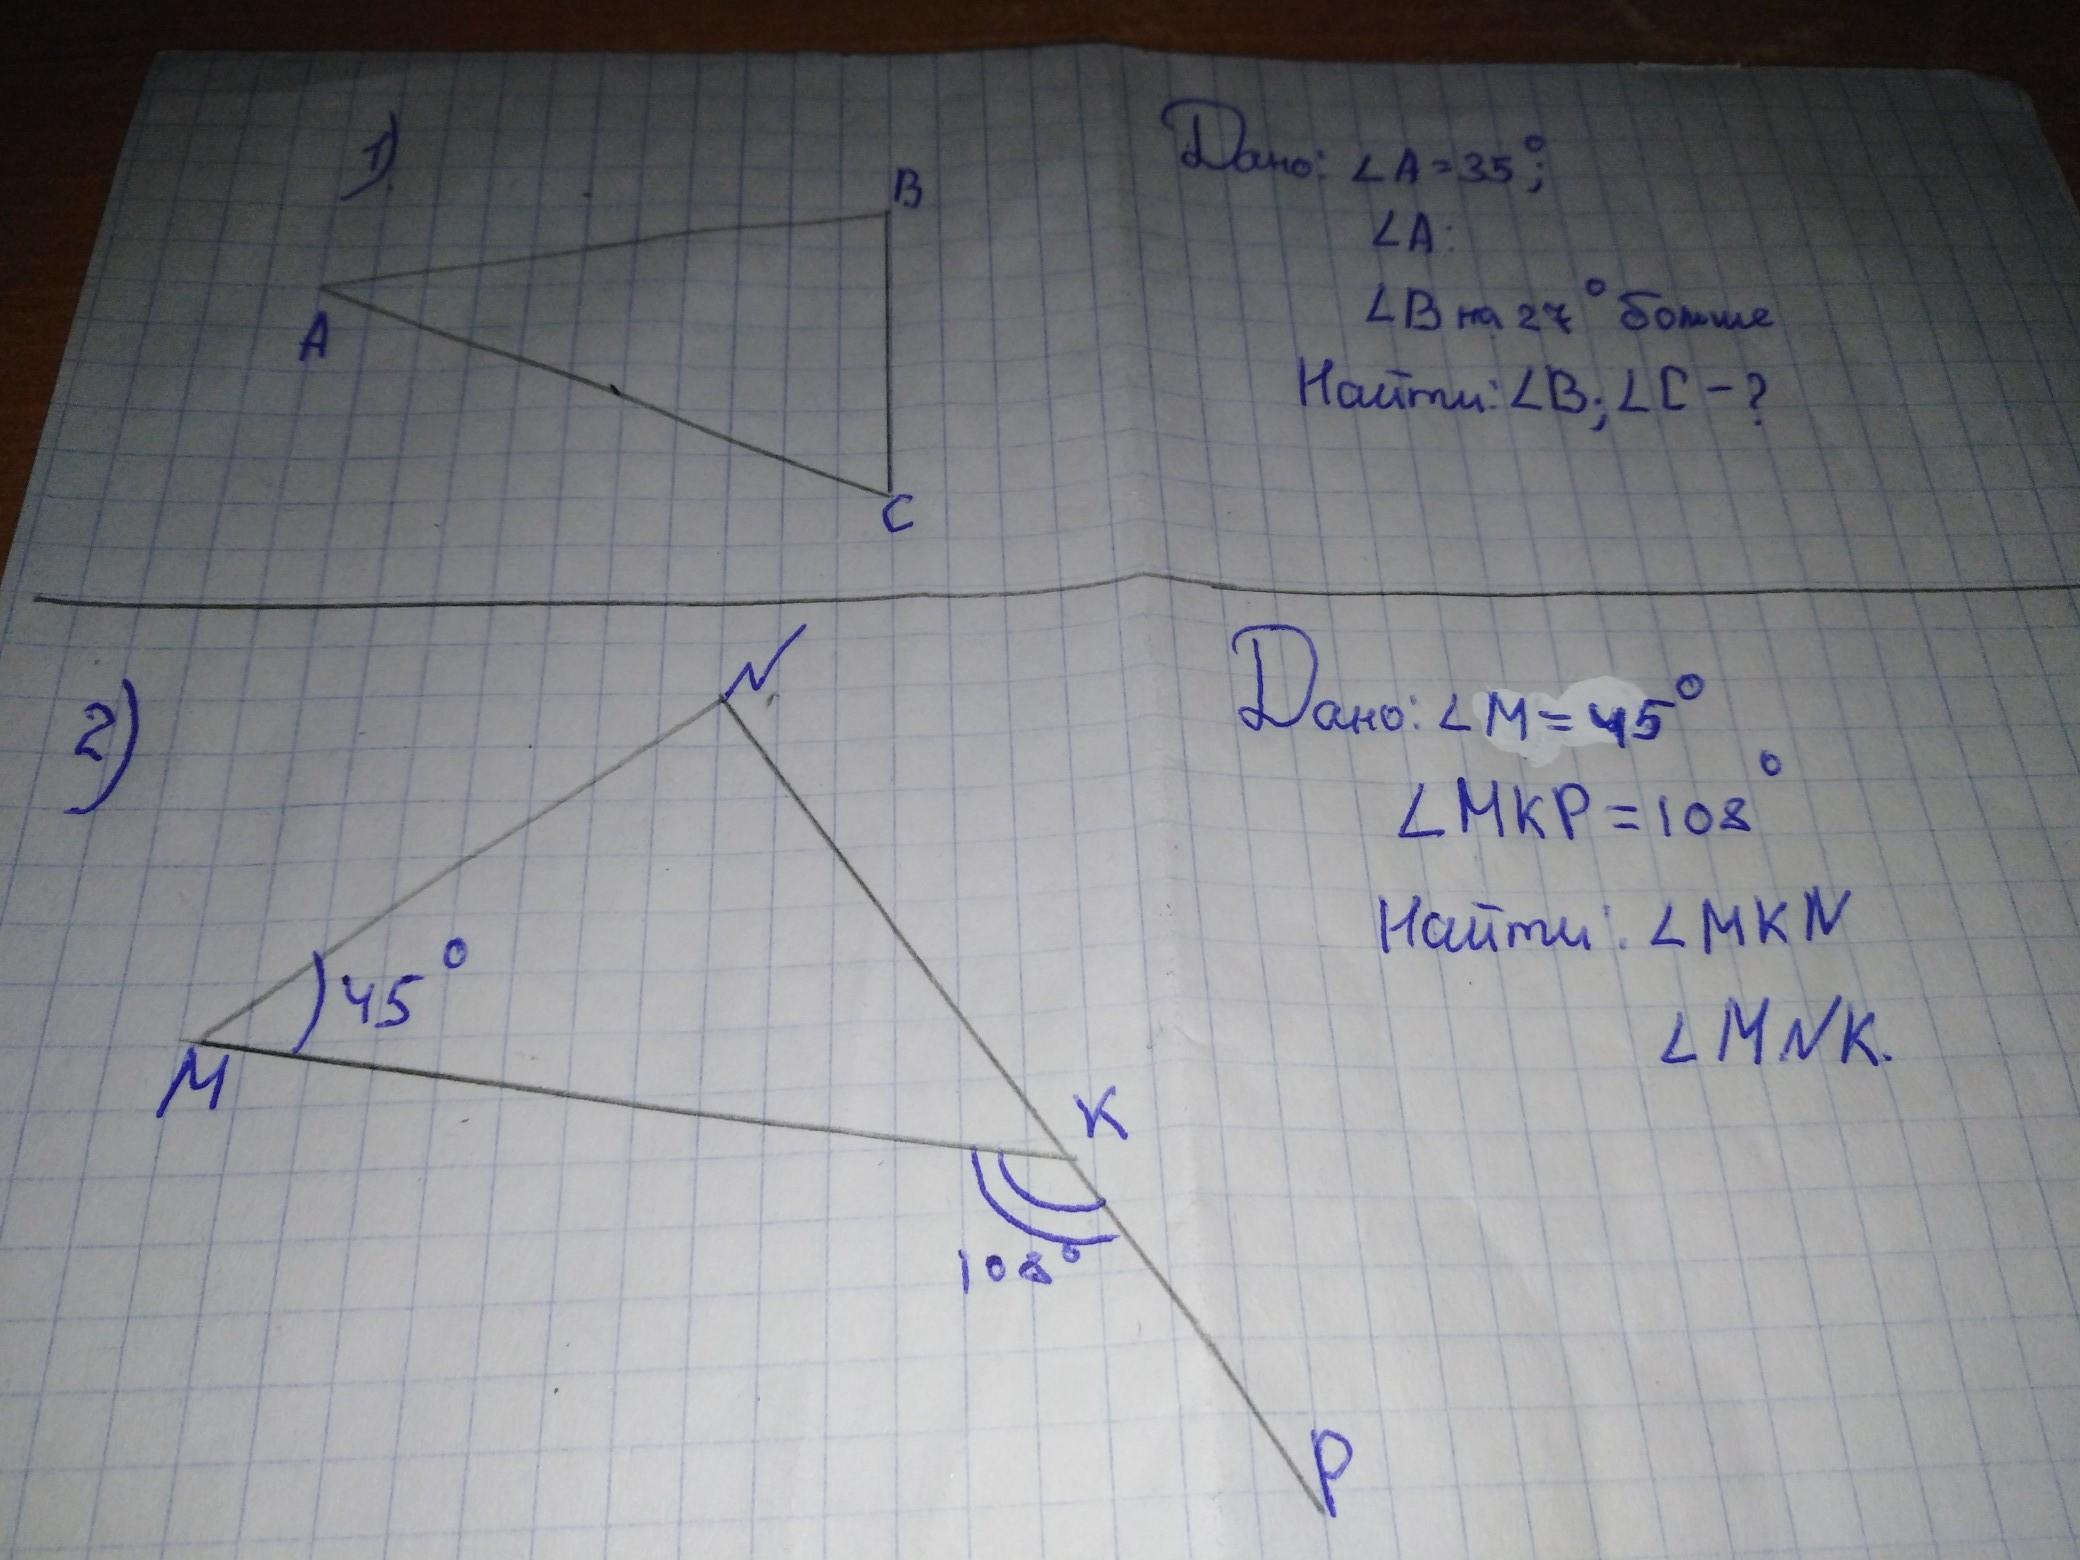 1)
B
A
C
Дано: ∠A=35°;
∠A:
∠B на 27° больше
Найти: ∠B; ∠C - ?
2)
N
45°
M
K
108°
P
Дано: ∠M=45°
∠MKP=108°
Найти: ∠MKN
∠MNK.